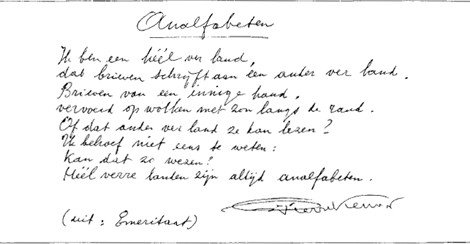 Analfabeten
Ik ben een héél ver land,
dat brieven schrijft aan een ander ver land.
Brieven van een innige hand,
vervoerd op wolken met zon langs de rand.
Of dat ander ver land ze kan lezen?
Ik behoef niet eens te weten:
Kan dat zo wezen!
Héél verre landen zijn altijd analfabeten.
(uit: Emeritaat)